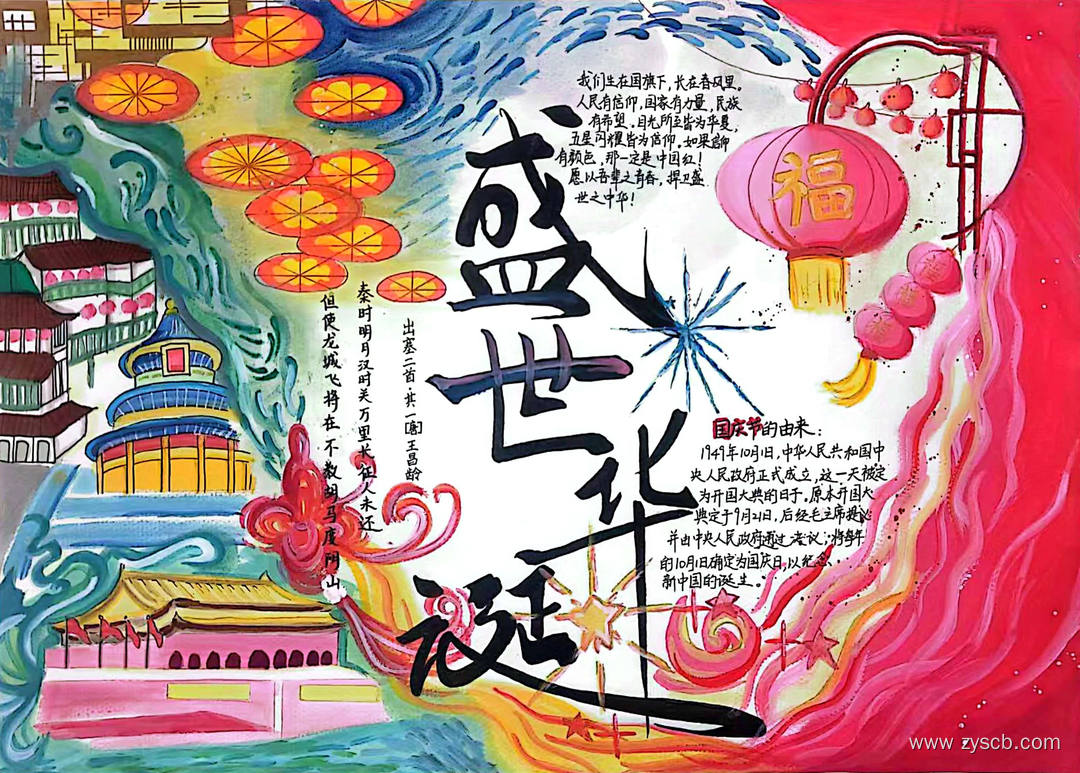 我们生在国旗下，长在春风里。
人民有信仰，国家有力量，民族
有希望。目光所至皆为华夏，
五星闪耀皆为信仰。如果信仰
有颜色，那一定是中国红！
愿以吾辈之青春，捍卫盛
世之中华！
福
盛世华诞
出塞二首·其一[唐]王昌龄
秦时明月汉时关万里长征人未还
但使龙城飞将在不教胡马度阴山
国庆节的由来：
1949年10月1日，中华人民共和国中
央人民政府正式成立，这一天被定
为开国大典的日子。原本开国大
典定于9月21日，后经毛主席提议
并由中央人民政府通过决议，将每年
的10月1日确定为国庆日，以纪念
新中国的诞生。
www.zyscb.com